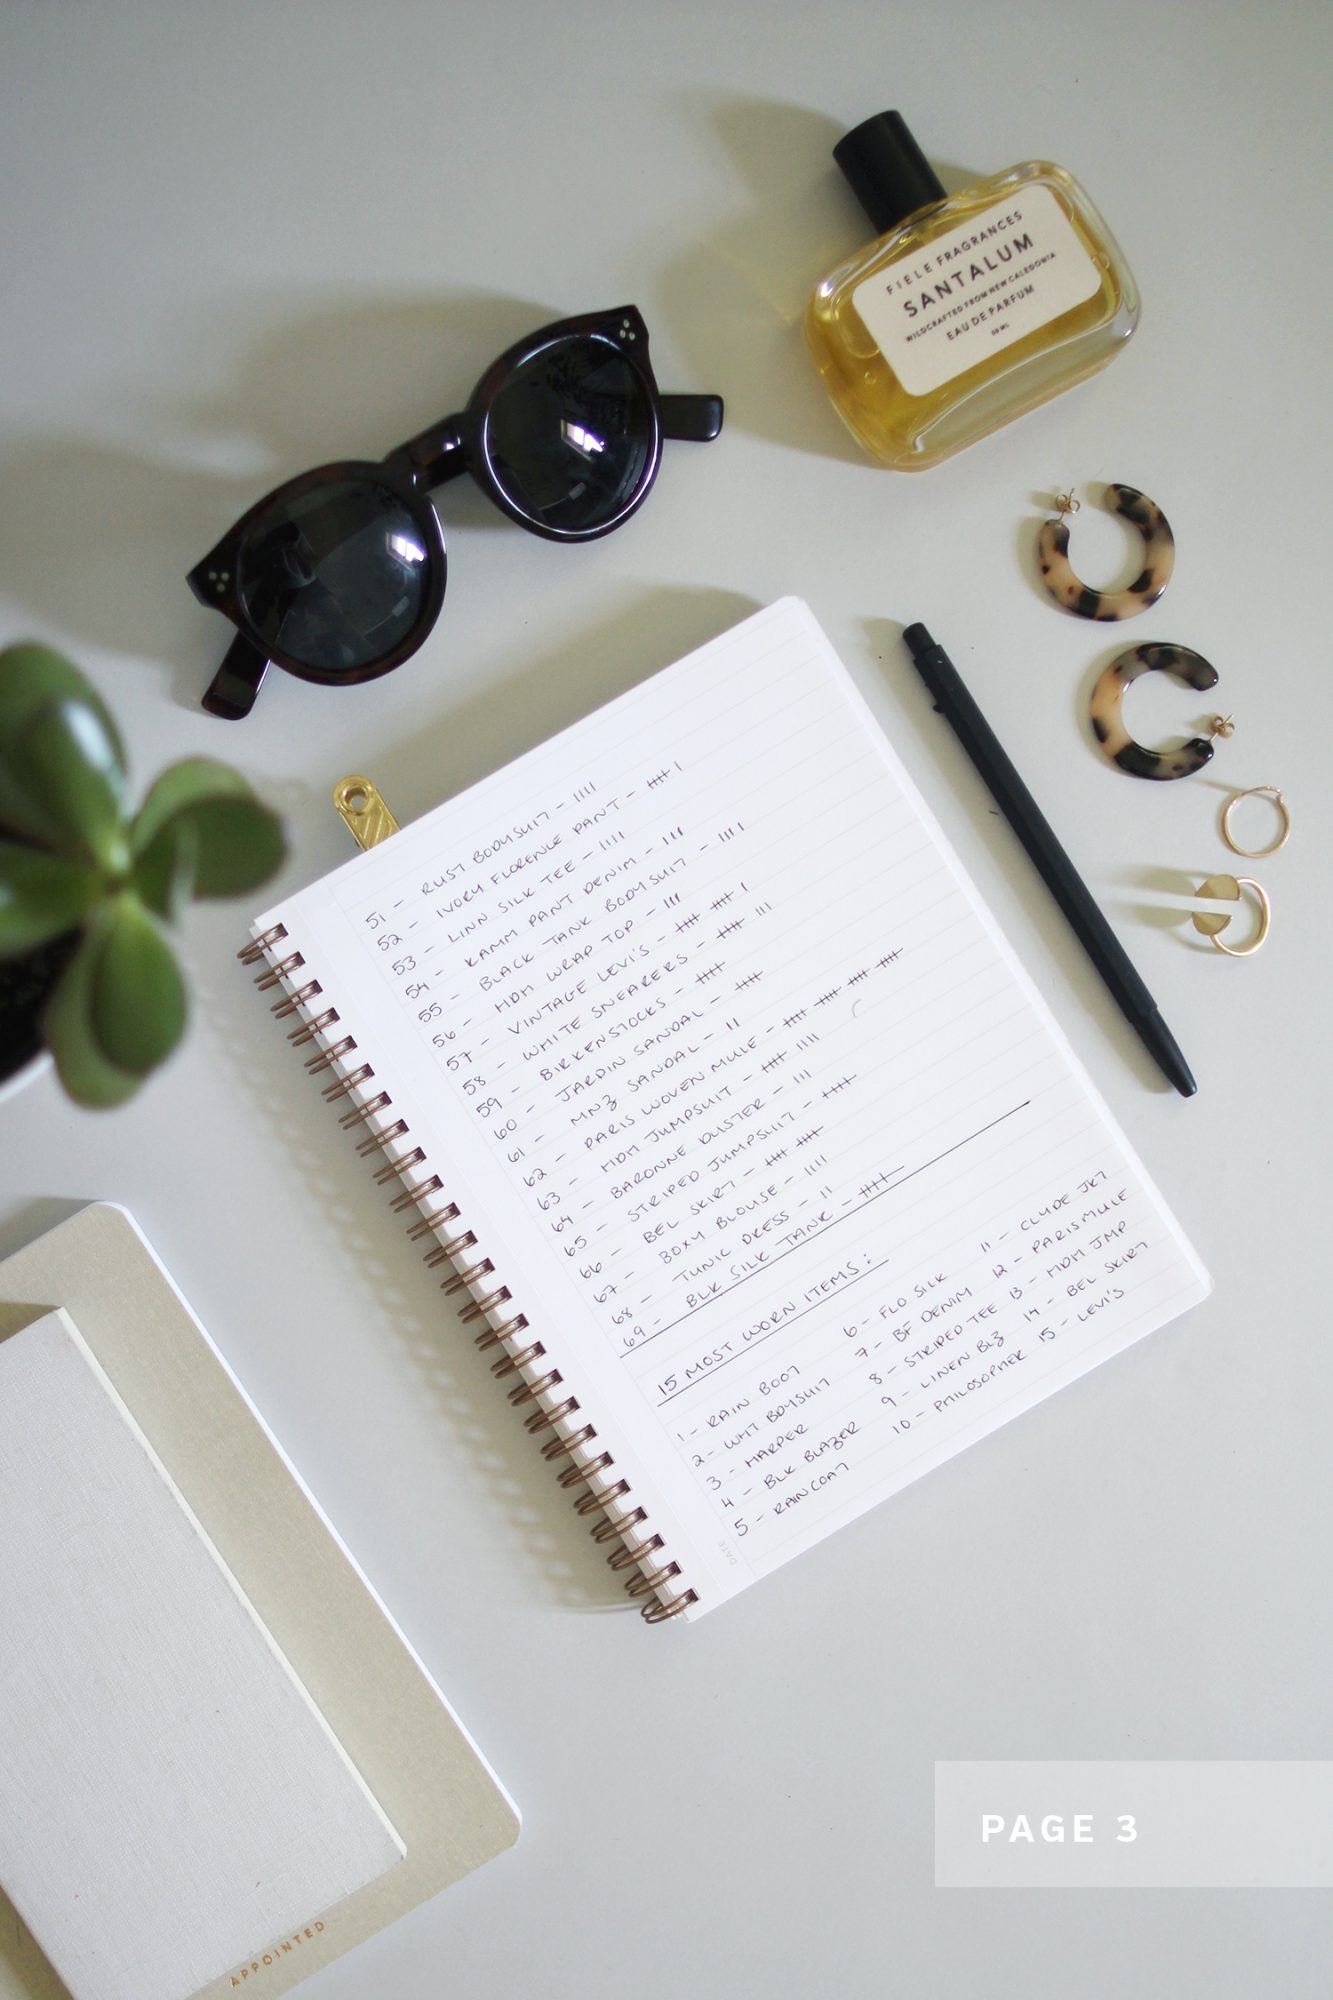 FIELE FRAGRANCES
SANTALUM
WILDCRAFTED FROM NEW CALEDONIA
EAU DE PARFUM
50 ML
51 - RUST BODYSUIT - IIII
52 - IVORY FLORENCE PANT - IIII I
53 - LINN SILK TEE - IIII
54 - KAMM PANT DENIM - III
55 - BLACK TANK BODYSUIT - IIII
56 - MDM WRAP TOP - III
57 - VINTAGE LEVI'S - IIII IIII I
58 - WHITE SNEAKERS - IIII III
59 - BIRKENSTOCKS - IIII
60 - JARDIN SANDAL - IIII
61 - MNZ SANDAL - II
62 - PARIS WOVEN MULE - IIII IIII IIII IIII
63 - MDM JUMPSUIT - IIII IIII
64 - BARONNE DUSTER - III
65 - STRIPED JUMPSUIT - IIII
66 - BEL SKIRT - IIII IIII
67 - BOXY BLOUSE - IIII
68 - TUNIC DRESS - II
69 - BLK SILK TANK - IIII
15 MOST WORN ITEMS:
1 - RAIN BOOT
2 - WHT BDYSUIT
3 - HARPER
4 - BLK BLAZER
5 - RAINCOAT
6 - FLO SILK
7 - BF DENIM
8 - STRIPED TEE
9 - LINEN BLZ
10 - PHILOSOPHER
11 - CLYDE JKT
12 - PARIS MULE
13 - MDM JMP
14 - BEL SKIRT
15 - LEVI'S
DATE
APPOINTED
PAGE 3